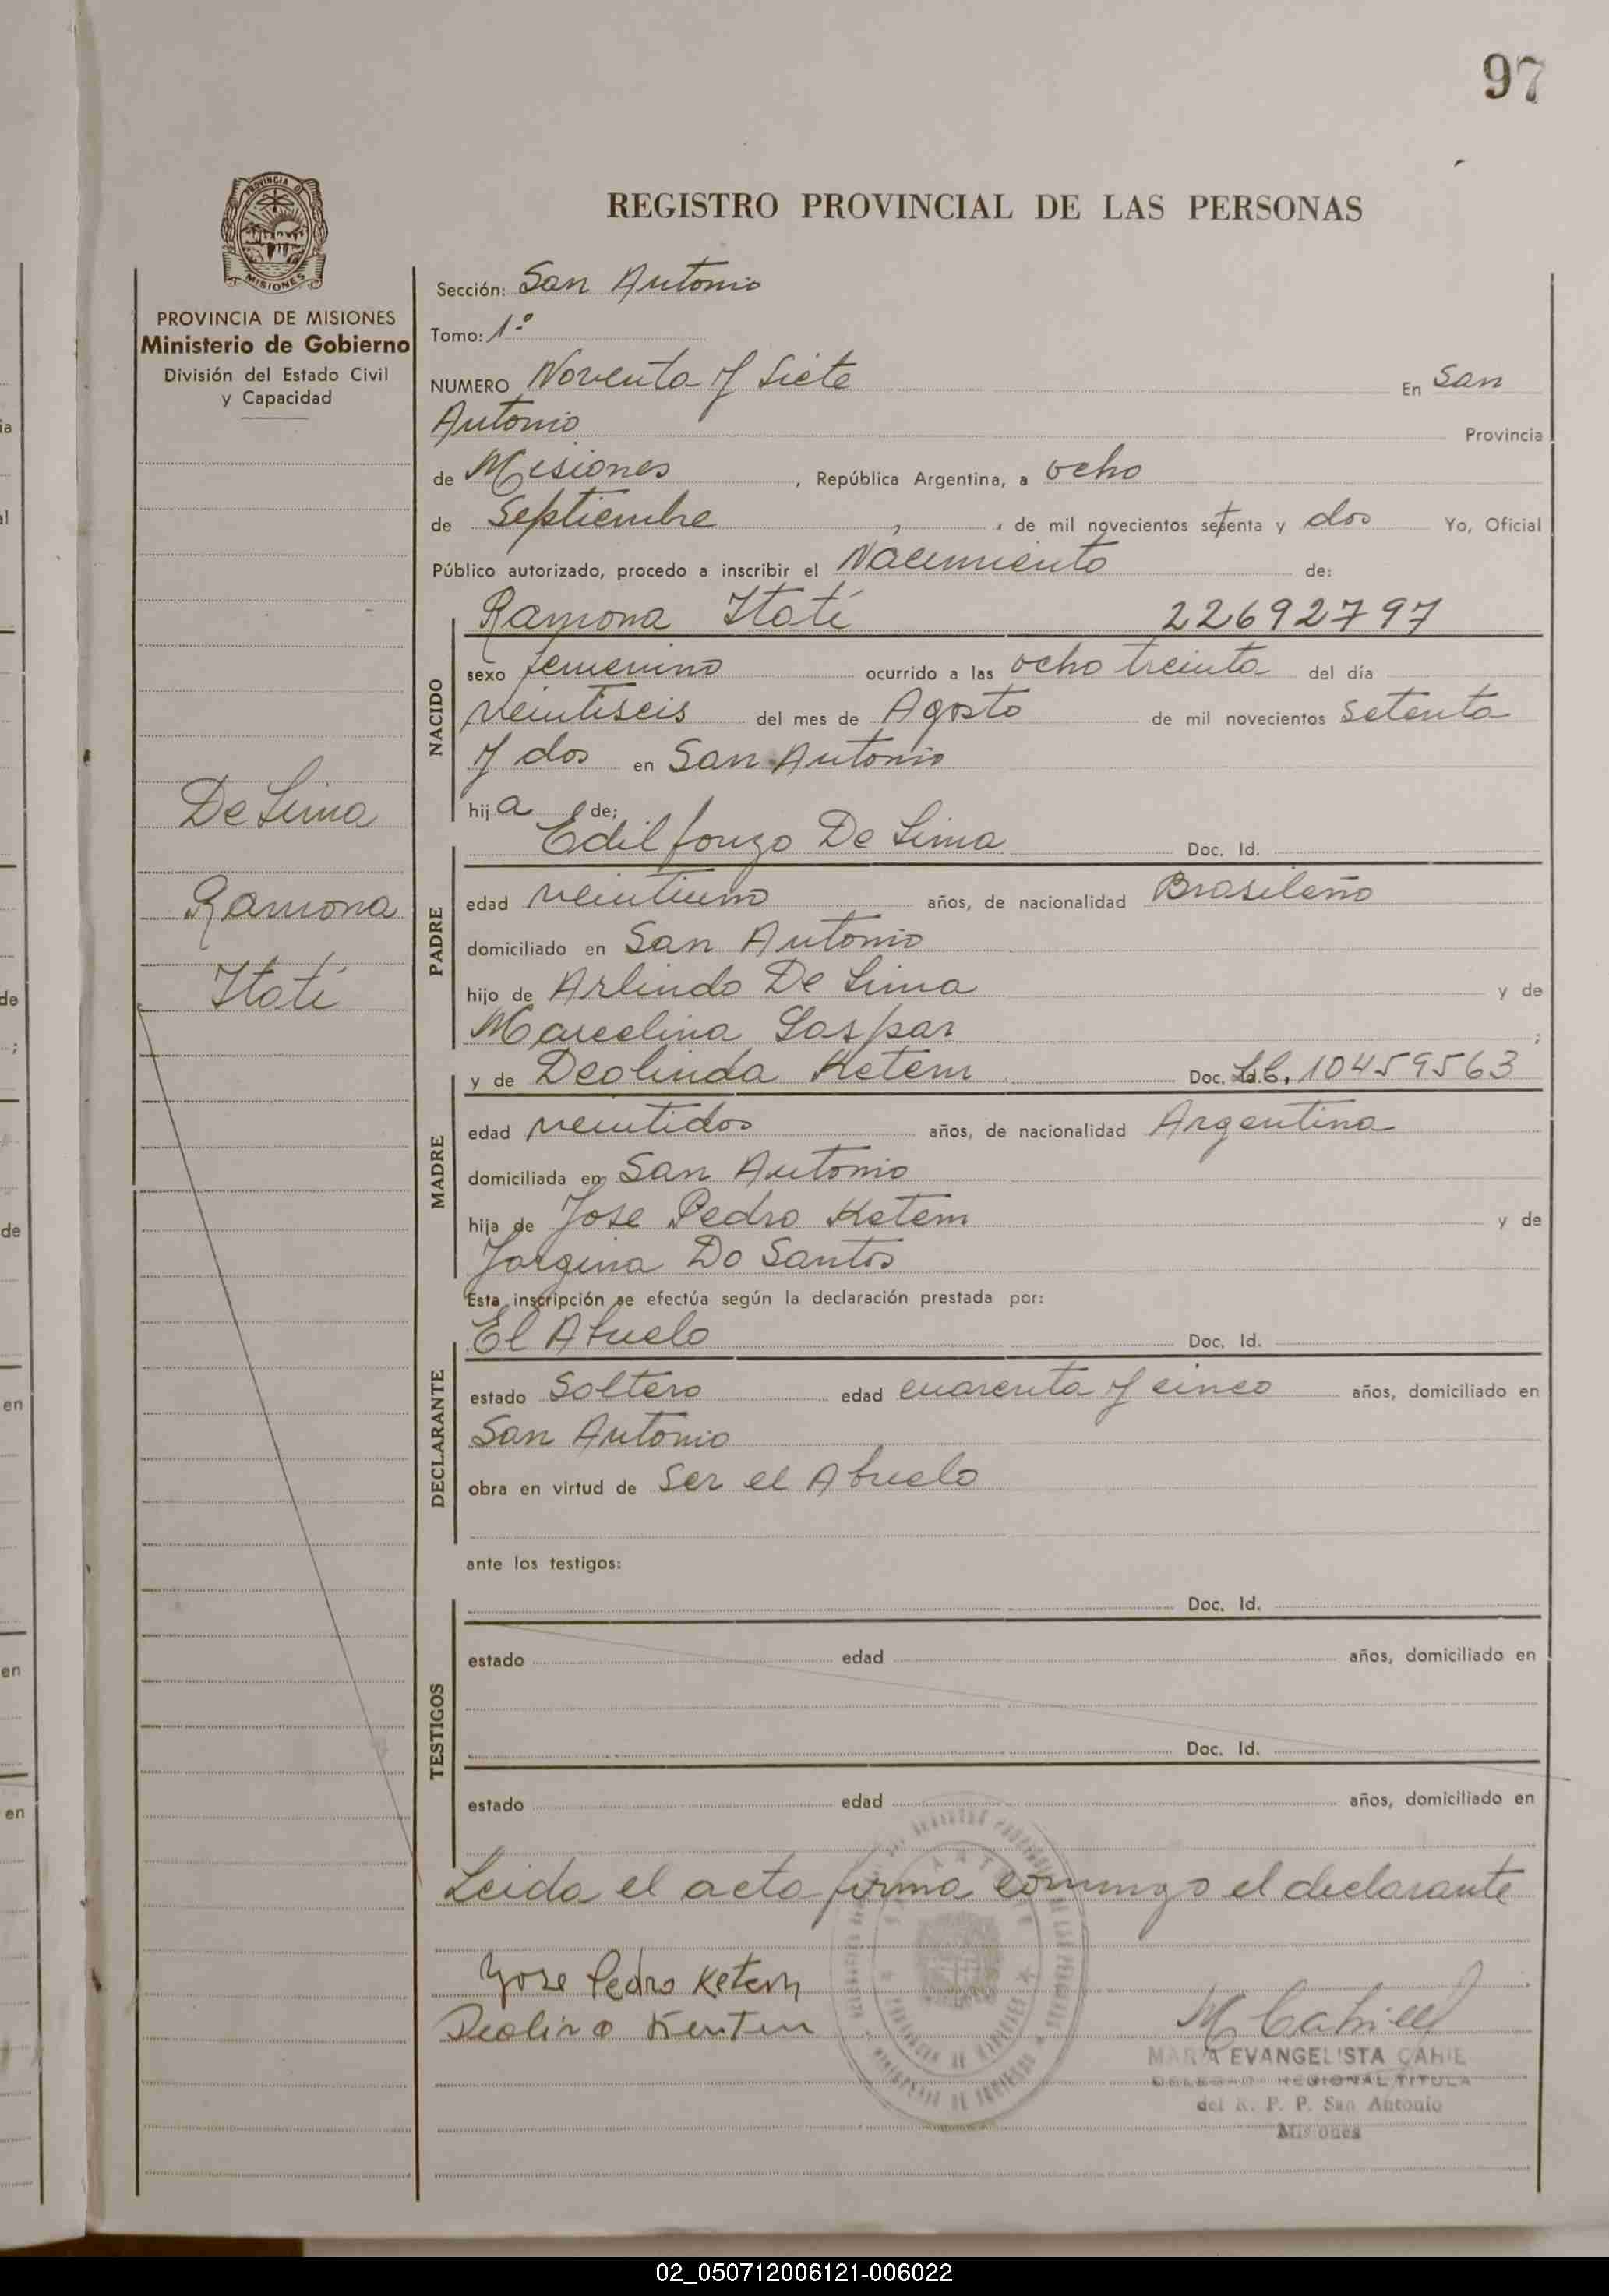 97
PROVINCIA DE MISIONES
PROVINCIA DE MISIONES
Ministerio de Gobierno
División del Estado Civil
y Capacidad
De Lima
Ramona
Itatí
REGISTRO PROVINCIAL DE LAS PERSONAS
Sección: San Antonio
Tomo: 1º
NUMERO Noventa y Siete En San
Antonio Provincia
de Misiones, República Argentina, a ocho
de Septiembre, de mil novecientos setenta y dos Yo, Oficial
Público autorizado, procedo a inscribir el Nacimiento de:
Ramona Itatí 22692797
NACIDO
sexo femenino ocurrido a las ocho treinta del día
veintiseis del mes de Agosto de mil novecientos setenta
y dos en San Antonio
hija de;
Edilfonzo De Lima Doc. Id.
PADRE
edad veintiuno años, de nacionalidad Brasileño
domiciliado en San Antonio
hijo de Arlindo De Lima y de
Marcelina Gaspar ;
y de Deolinda Ketem Doc. Id. L.C. 10459563
MADRE
edad veintidos años, de nacionalidad Argentina
domiciliada en San Antonio
hija de Jose Pedro Ketem y de
Jorgina Do Santos
Esta inscripción se efectúa según la declaración prestada por:
El Abuelo Doc. Id.
DECLARANTE
estado Soltero edad cuarenta y cinco años, domiciliado en
San Antonio
obra en virtud de Ser el Abuelo
ante los testigos:
Doc. Id.
TESTIGOS
estado edad años, domiciliado en
Doc. Id.
estado edad años, domiciliado en
Leida el acta firma conmigo el declarante
Jose Pedro Ketem
M Cahiel
MARIA EVANGELISTA CAHIE
DELEGAD REGIONAL TITULA
del R. P. P. San Antonio
Misiones
02_050712006121-006022